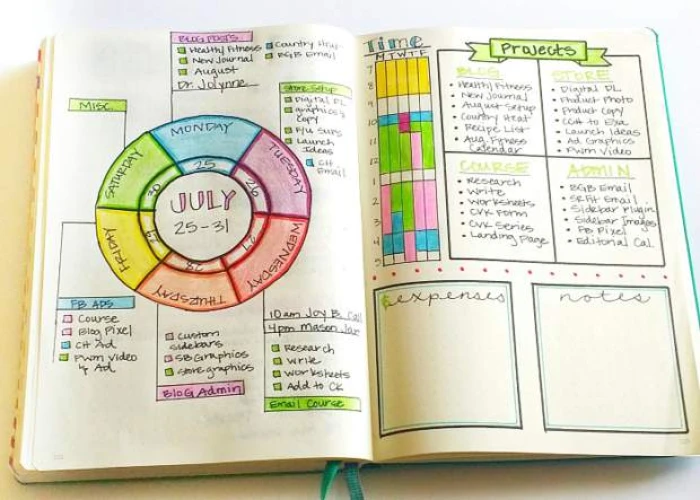 BLOG POSTS
Healthy Fitness
New Journal
August
Dr. Jolynne
Country Heat
BGB Email
Store Setup
Digital DL
graphics &
Copy
F/U Surs
Launch
Ideas
CH
Email
MISC.
MONDAY
25
TUESDAY
26
WEDNESDAY
27
THURSDAY
28
FRIDAY
29
SATURDAY
30
JULY
25-31
FB ADS
Course
Blog Pixel
CH Ad
PWM Video
& Ad
Custom
Sidebars
SB Graphics
Store graphics
Blog Admin
10am Joy B. Call
4pm Mason Jar
Research
Write
Worksheets
Add to CK
Email Course
Time
M T W T F
7
8
9
10
11
12
1
2
3
4
5
Projects
BLOG
Healthy Fitness
New Journal
August Setup
Country Heat
Recipe List
Aug. Fitness
Calendar
STORE
Digital DL
Product Photo
Product Copy
Launch Ideas
Ad Graphics
PWM Video
COURSE
Research
Write
Worksheets
CVK Form
CVK Series
Landing Page
ADMIN
BGB Email
SRFit Email
Sidebar Plugin
Sidebar Images
FB Pixel
Editorial Cal.
expenses
notes